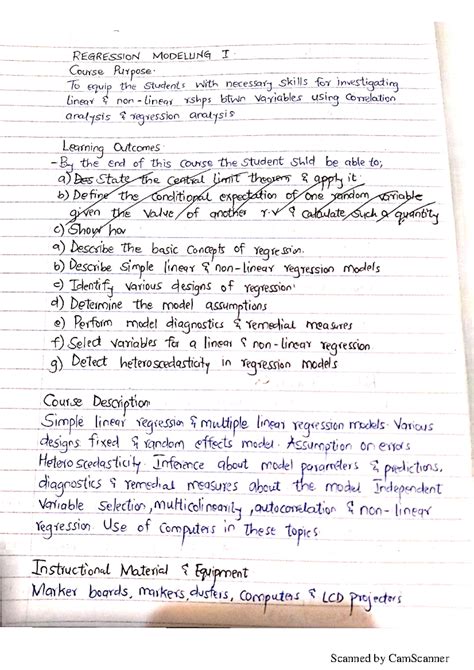 REGRESSION MODELLING I
Course Purpose.
To equip the students with necessary skills for investigating
linear & non-linear rshps btwn variables using correlation
analysis & regression analysis
Learning Outcomes
- By the end of this course the student shld be able to;
a) Des State the central limit theorem & apply it
b) Define the conditional expectation of one random variable
given the value of another r.v & calculate such a quantity
c) Show how
a) Describe the basic concepts of regression.
b) Describe simple linear & non-linear regression models
c) Identify various designs of regression
d) Determine the model assumptions
e) Perform model diagnostics & remedial measures
f) Select variables for a linear & non-linear regression
g) Detect heteroscedasticity in regression models
Course Description
Simple linear regression & multiple linear regression models. Various
designs fixed & random effects model. Assumption on errors
Heteroscedasticity. Inference about model paramders & predictions,
diagnostics & remedial measures about the model Independent
Variable selection, multicolinearity, autocorrelation & non-linear
regression Use of Computers in these topics
Instructional Material & Equipment
Marker boards, markers, dusters, computers & LCD projectors
Scanned by CamScanner